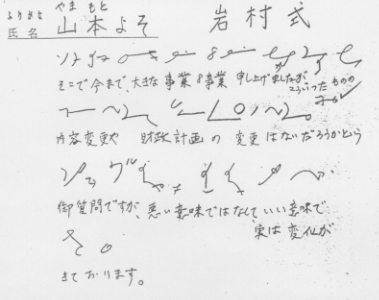 ふりがな やまもと
氏名 山本よそ 岩村式
そこで今まで 大きな 事業 事業 申し上げましたが こういった ものの
内容変更や 財政計画 の 変更 はないだろうかという
御質問ですが、悪い意味ではなくして、いい意味で
実は変化が
きております。